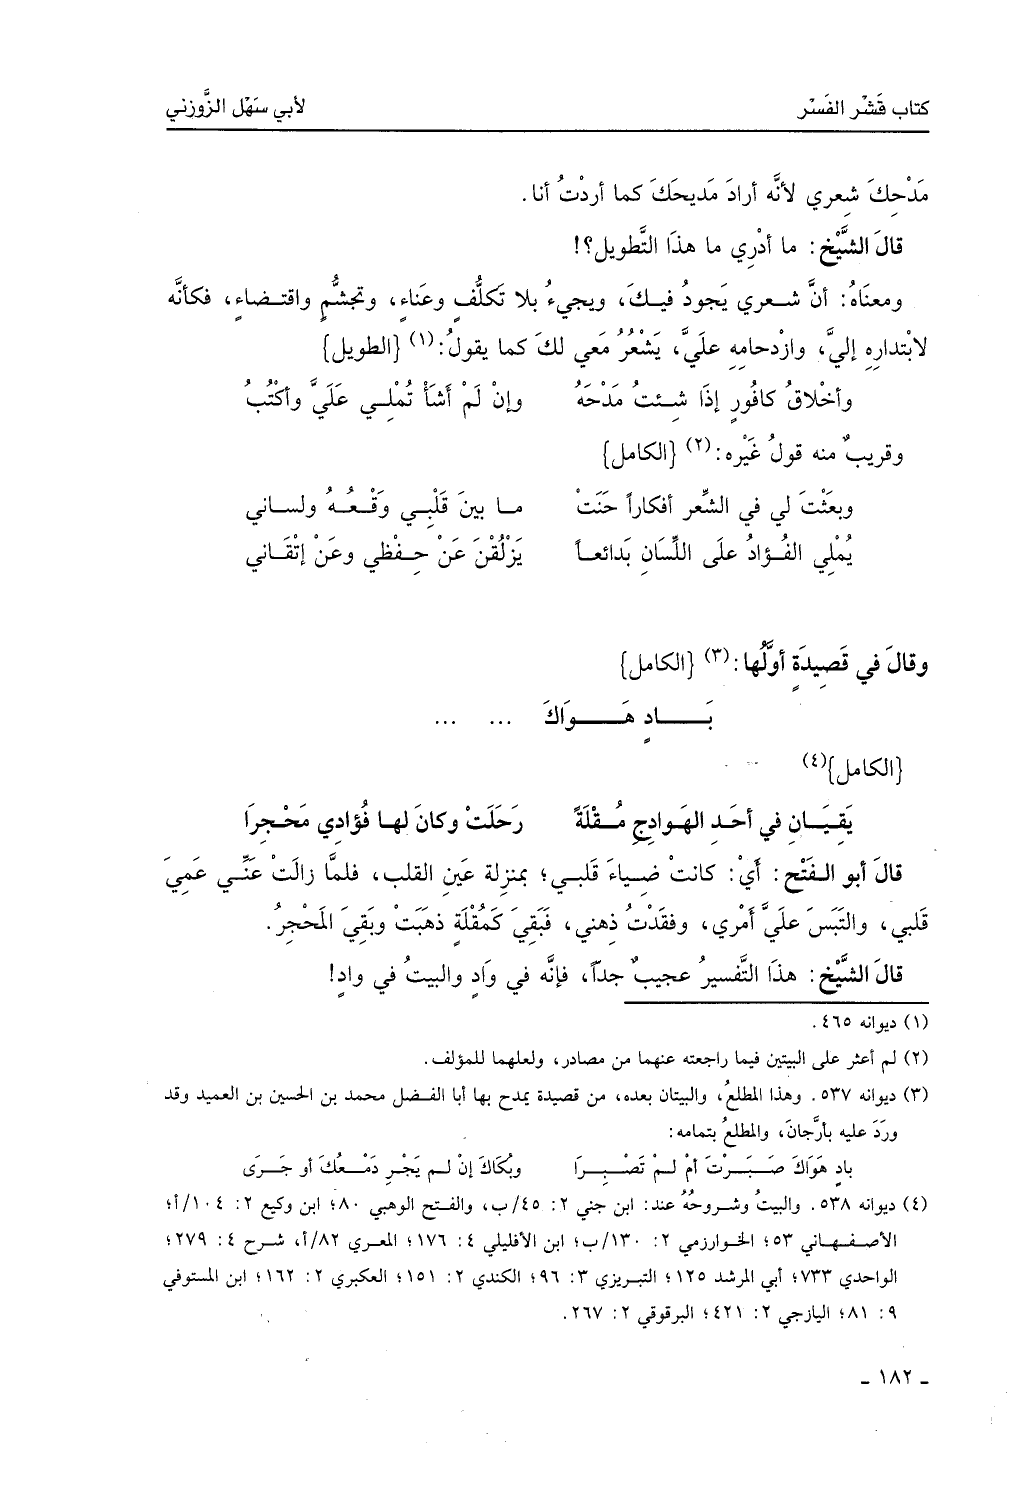 كتاب قَشْر الفَسْر لأبي سَهْل الزَّوزني
مَدْحِكَ شِعري لأنَّه أرادَ مَديحَكَ كما أردْتُ أنا.
قالَ الشَّيْخ: ما أدْرِي ما هذَا التَّطويل؟!
ومعنَاهُ: أنَّ شعري يَجودُ فيكَ، ويجيءُ بلا تَكلُّفٍ وعَناءٍ، وتجشُّمٍ واقتضاءٍ، فكأنَّه
لابْتدارِهِ إليَّ، وازْدحامِهِ علَيَّ، يَشْعُرُ مَعي لكَ كما يقولُ:(١) {الطويل}
وأخْلاقُ كافُورٍ إذَا شِئتُ مَدْحَهُ وإنْ لَمْ أشَأْ تُمْلِي عَلَيَّ وأكْتُبُ
وقريبٌ منه قولُ غَيْره:(٢) {الكامل}
وبعَثْتَ لي في الشِّعر أفكاراً حَنَتْ ما بينَ قَلْبِي وَقْعُهُ ولساني
يُمْلِي الفُؤادُ علَى اللِّسَانِ بَدائعاً يَزْلُقْنَ عَنْ حِفْظي وعَنْ إتْقَاني
وقالَ في قَصِيدَةٍ أوَّلُها:(٣) {الكامل}
بَادٍ هَوَاكَ ... ...
{الكامل}(٤)
يَقِيَانِ في أحَدِ الهَوادِجِ مُقْلَةً رَحَلَتْ وكانَ لها فُؤادِي مَحْجِرَا
قالَ أبو الفَتْح: أَيْ: كانتْ ضِياءَ قَلبي؛ بمنزلة عَينِ القلب، فلمَّا زالَتْ عنَّي عَمِيَ
قلبي، والتَبَسَ علَيَّ أمْري، وفقَدْتُ ذِهني، فَبَقِيَ كَمُقْلَةٍ ذهَبَتْ وبَقِيَ المَحْجِرُ.
قالَ الشَّيْخ: هذَا التَّفسيرُ عجيبٌ جدّاً، فإنَّه في وَادٍ والبيتُ في وادٍ!
(١) ديوانه ٤٦٥.
(٢) لم أعثر على البيتين فيما راجعته عنهما من مصادر، ولعلهما للمؤلف.
(٣) ديوانه ٥٣٧. وهذا المطلعُ، والبيتان بعده، من قصيدة يمدح بها أبا الفضل محمد بن الحسين بن العميد وقد
وردَ عليه بأرَّجانَ، والمطلعُ بتمامه:
بادٍ هَوَاكَ صَبَرْتَ أمْ لَمْ تَصْبِرَا وبُكَاكَ إنْ لم يَجْرِ دَمْعُكَ أو جَرَى
(٤) ديوانه ٥٣٨. والبيتُ وشروحُهُ عند: ابن جني ٢: ٤٥/ب، والفتح الوهبي ٨٠؛ ابن وكيع ٢: ١٠٤/أ؛
الأصفهاني ٥٣؛ الخوارزمي ٢: ١٣٠/ب؛ ابن الأفليلي ٤: ١٧٦؛ المعري ٨٢/أ، شرح ٤: ٢٧٩؛
الواحدي ٧٣٣؛ أبي المرشد ١٢٥؛ التبريزي ٣: ٩٦؛ الكندي ٢: ١٥١؛ العكبري ٢: ١٦٢؛ ابن المستوفي
٩: ٨١؛ اليازجي ٢: ٤٢١؛ البرقوقي ٢: ٢٦٧.
- ١٨٢ -